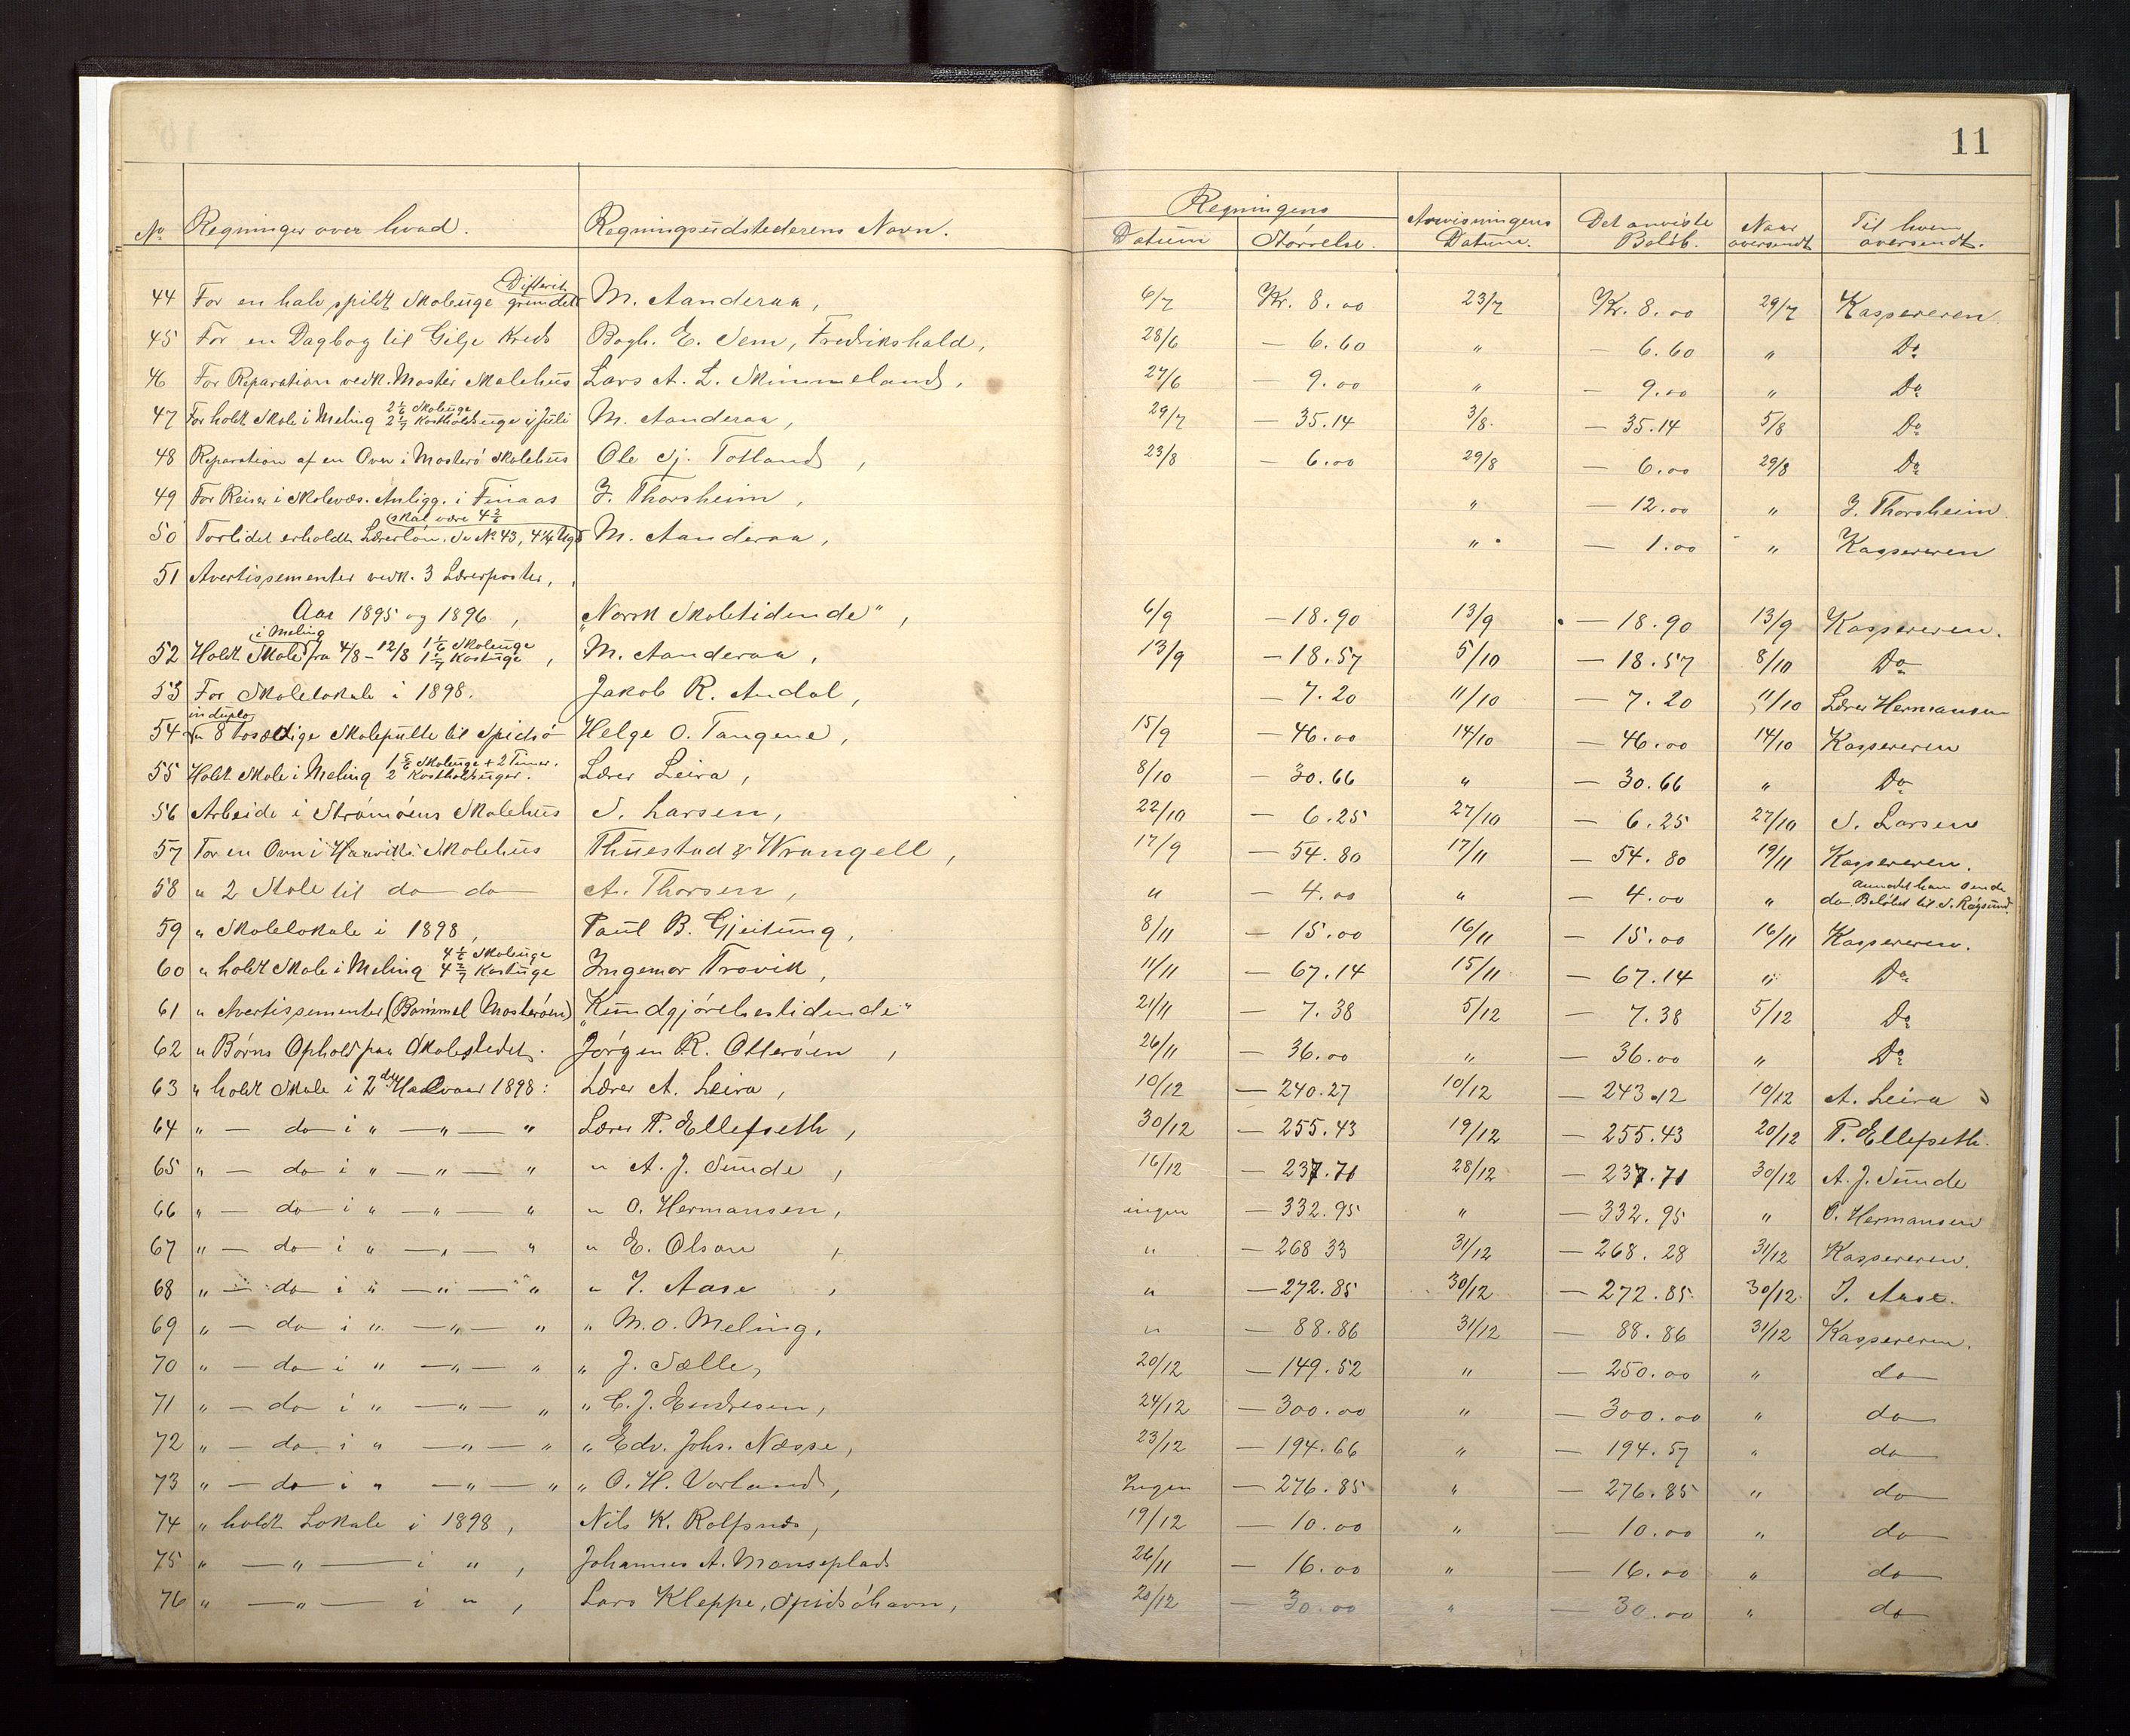 11
No Regninger over hvad. Regningsudstederens Navn. Regningens Datum Størrelse. Anvisningens Datum. Det anviste Beløb. Naar oversendt Til hvem oversendt.
Difterit
44 For en halv spildt Skoleuge grundet M. Aanderaa, 6/7 Kr. 8.00 23/7 Kr. 8.00 29/7 Kassereren
45 For en Dagbog til Gilje Kreds Bogh. E. Sem, Fredrikshald, 28/6 — 6.60 " — 6.60 " Do
46 For Reparation vedk. Moster Skolehus Lars A. L. Skimmeland, 27/6 — 9.00 " — 9.00 " Do
47 For holdt Skole i Meling 2 1/6 Skoleuge 2 1/7 Kostholdsuge i Juli M. Aanderaa, 29/7 — 35.14 3/8 — 35.14 5/8 Do
48 Reparation af en Ovn i Mosterø Skolehus Ole Sj. Totland, 23/8 — 6.00 29/8 — 6.00 29/8 Do
49 For Reiser i Skolevæs. Anligg. i Finaas J. Thorsheim, " — 12.00 " J. Thorsheim
skal være 4 3/6
50 Forlidet erholdt Lærerløn. Se No 43, M. Aanderaa, " — 1.00 " Kassereren
51 Avertissementer vedk. 3 Lærerposter,
Aar 1895 og 1896, "Norsk Skoletidende", 6/9 — 18.90 13/9 — 18.90 13/9 Kassereren.
i Meling
52 Holdt Skole fra 4/8 – 12/8 1 1/6 Skoleuge 1 2/7 Kostuge, M. Aanderaa, 13/9 — 18.57 5/10 — 18.57 8/10 Do
53 For Skolelokale i 1898. Jakob R. Andal, — 7.20 11/10 — 7.20 11/10 Lærer Hermansen
in duplo
54 " 8 tosædige Skolepulte til Spidsø Helge O. Tangene, 15/9 — 46.00 14/10 — 46.00 14/10 Kassereren
55 Holdt Skole i Meling 1 5/6 Skoleuge + 2 Timer. 2 Kostholdsuger. Lærer Leira, 8/10 — 30.66 " — 30.66 " Do
56 Arbeide i Strømøens Skolehus S. Larsen, 22/10 — 6.25 27/10 — 6.25 27/10 S. Larsen
57 For en Ovn i Haaviks Skolehus Thuestad & Wrangell, 17/9 — 54.80 17/11 — 54.80 19/11 Kassereren.
58 " 2 Stole til do do A. Thorsen, " — 4.00 " — 4.00 " do Anmodet ham sende Beløbet til S. Røgsund.
59 " Skolelokale i 1898, Paul B. Gjeitung, 8/11 — 15.00 16/11 — 15.00 16/11 Kassereren.
60 " holdt Skole i Meling 4 1/6 Skoleuge 4 2/7 Kostuge Ingemar Trovik, 11/11 — 67.14 15/11 — 67.14 " Do
61 " Avertissementer (Bømmel Mosterøen) "Kundgjørelsestidende" 21/11 — 7.38 5/12 — 7.38 5/12 Do
62 " Børns Ophold paa Skolestedet. Jørgen R. Otterøen, 26/11 — 36.00 " — 36.00 " Do
63 " holdt Skole i 2det Halvaar 1898: Lærer A. Leira, 10/12 — 240.27 10/12 — 243.12 10/12 A. Leira
64 " — do i " — " — " Lærer P. Ellefseth, 30/12 — 255.43 19/12 — 255.43 20/12 P. Ellefseth.
65 " — do i " — " — " " A. J. Sunde, 16/12 — 237.71 28/12 — 237.71 30/12 A. J. Sunde
66 " — do i " — " — " " O. Hermansen, ingen — 332.95 " — 332.95 " O. Hermansen
67 " — do i " — " — " " E. Olson, " — 268 33 31/12 — 268.28 31/12 Kassereren.
68 " — do i " — " — " " I. Aase, " — 272.85 30/12 — 272.85 30/12 I. Aase.
69 " — do i " — " — " " M. O. Meling, " — 88.86 31/12 — 88.86 31/12 Kassereren.
70 " — do i " — " — " " J. Sælle, 20/12 — 149.52 " — 250.00 " do
71 " — do i " — " — " " C. J. Endresen, 24/12 — 300.00 " — 300.00 " do
72 " — do i " — " — " " Edv. Johs. Næsse, 23/12 — 194.66 " — 194.57 " do
73 " — do i " — " — " " O. H. Vorland, Ingen — 276.85 " — 276.85 " do
74 " holdt Lokale i 1898, Nils K. Rolfsnæs, 19/12 — 10.00 " — 10.00 " do
75 " — " — i ", Johannes A. Monseplads 26/11 — 16.00 " — 16.00 " do
76 " — " — i ", Lars Kleppe, Spidsøhavn, 20/12 — 30.00 " — 30.00 " do